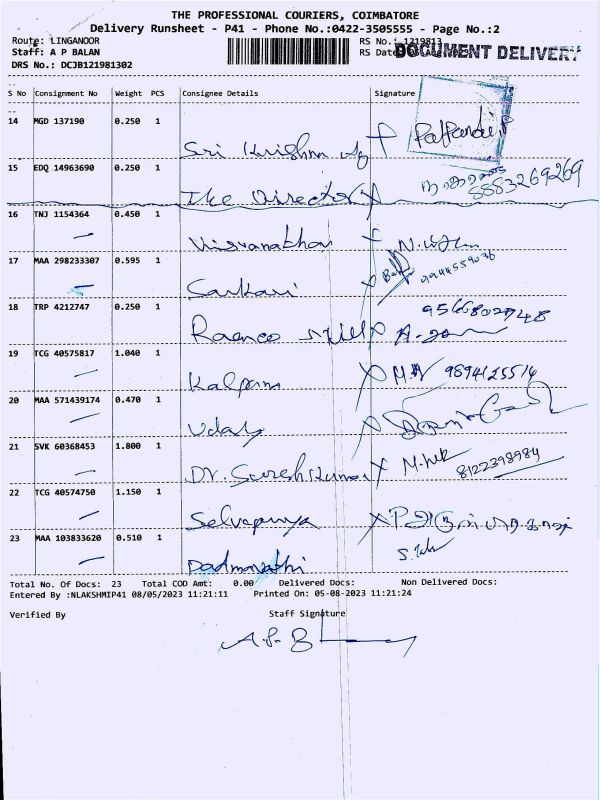 THE PROFESSIONAL COURIERS, COIMBATORE
Delivery Runsheet - P41 - Phone No.:0422-3505555 - Page No.:2
Route: LINGANOOR
RS No.: 1219813
Staff: A P BALAN
RS Date
DOCUMENT DELIVERY
DRS No.: DCJB121981302
S No Consignment No Weight PCS Consignee Details Signature
14 MGD 137190 0.250 1
Sri Krishna
15 EDQ 14963690 0.250 1
The Director
8883269269
16 TNJ 1154364 0.450 1
Visvanathan
17 MAA 298233307 0.595 1
Sarkari
9944559036
18 TRP 4212747 0.250 1
9566802748
19 TCG 40575817 1.040 1
Kalpana
9894125514
20 MAA 571439174 0.470 1
Uday
21 SVK 60368453 1.800 1
Dr. Sureshkumar
8122398984
22 TCG 40574750 1.150 1
Selvapriya
23 MAA 103833620 0.510 1
Padmavathi
Total No. Of Docs: 23 Total COD Amt: 0.00 Delivered Docs: Non Delivered Docs:
Entered By :NLAKSHMIP41 08/05/2023 11:21:11 Printed On: 05-08-2023 11:21:24
Verified By Staff Signature
A.P. B